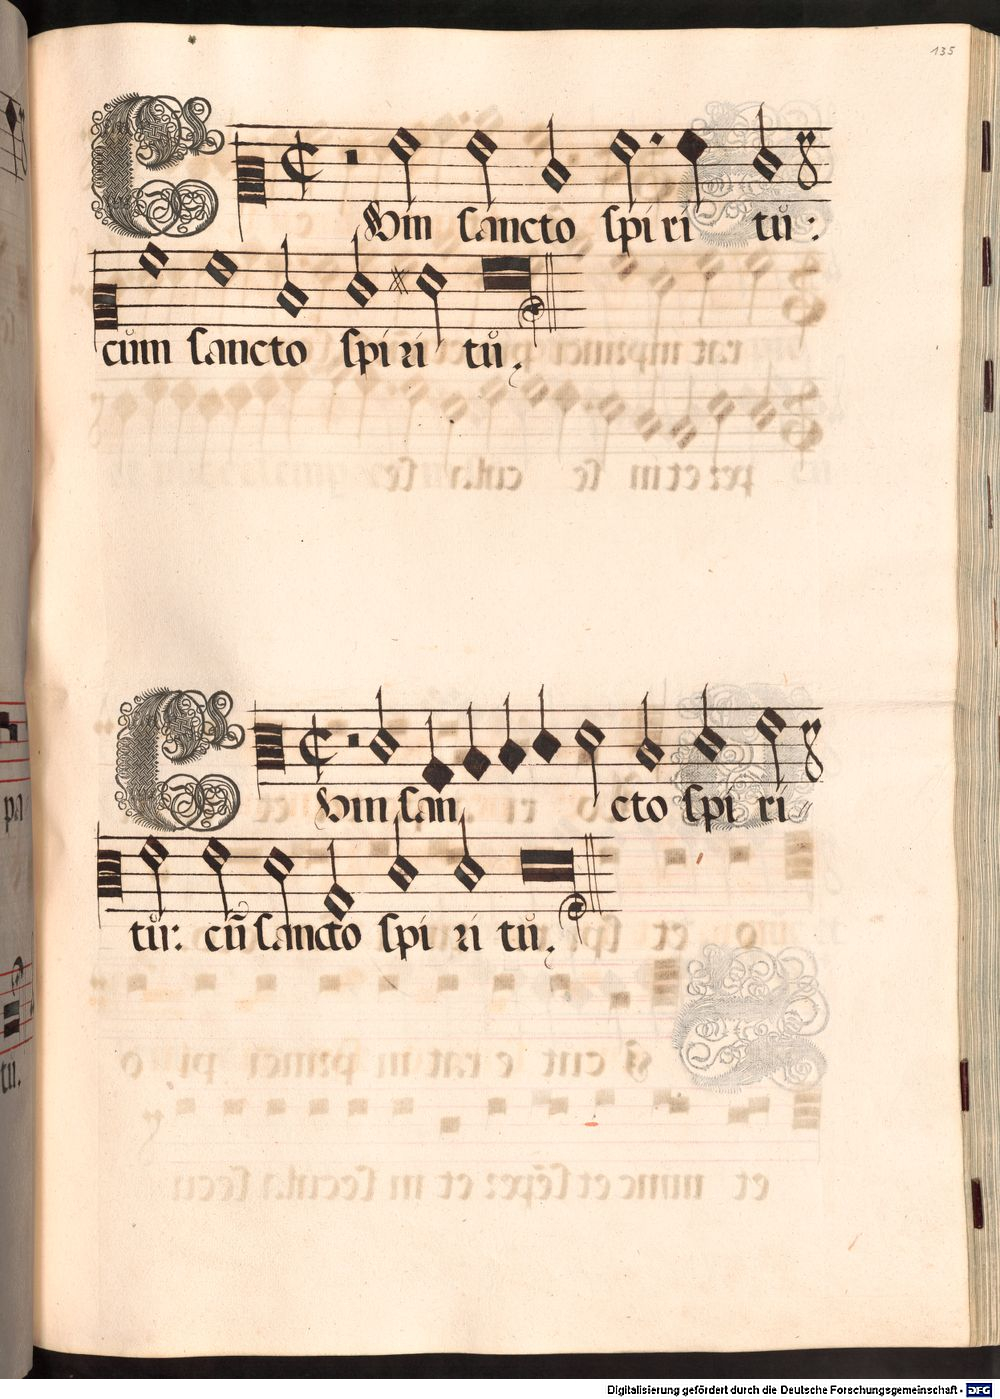 135
Cum sancto spi ri tů:
cům sancto spi ri tů.
Cum san cto spi ri
tů: cũ sancto spi ri tů.
pa
tu.
Digitalisierung gefördert durch die Deutsche Forschungsgemeinschaft - DFG